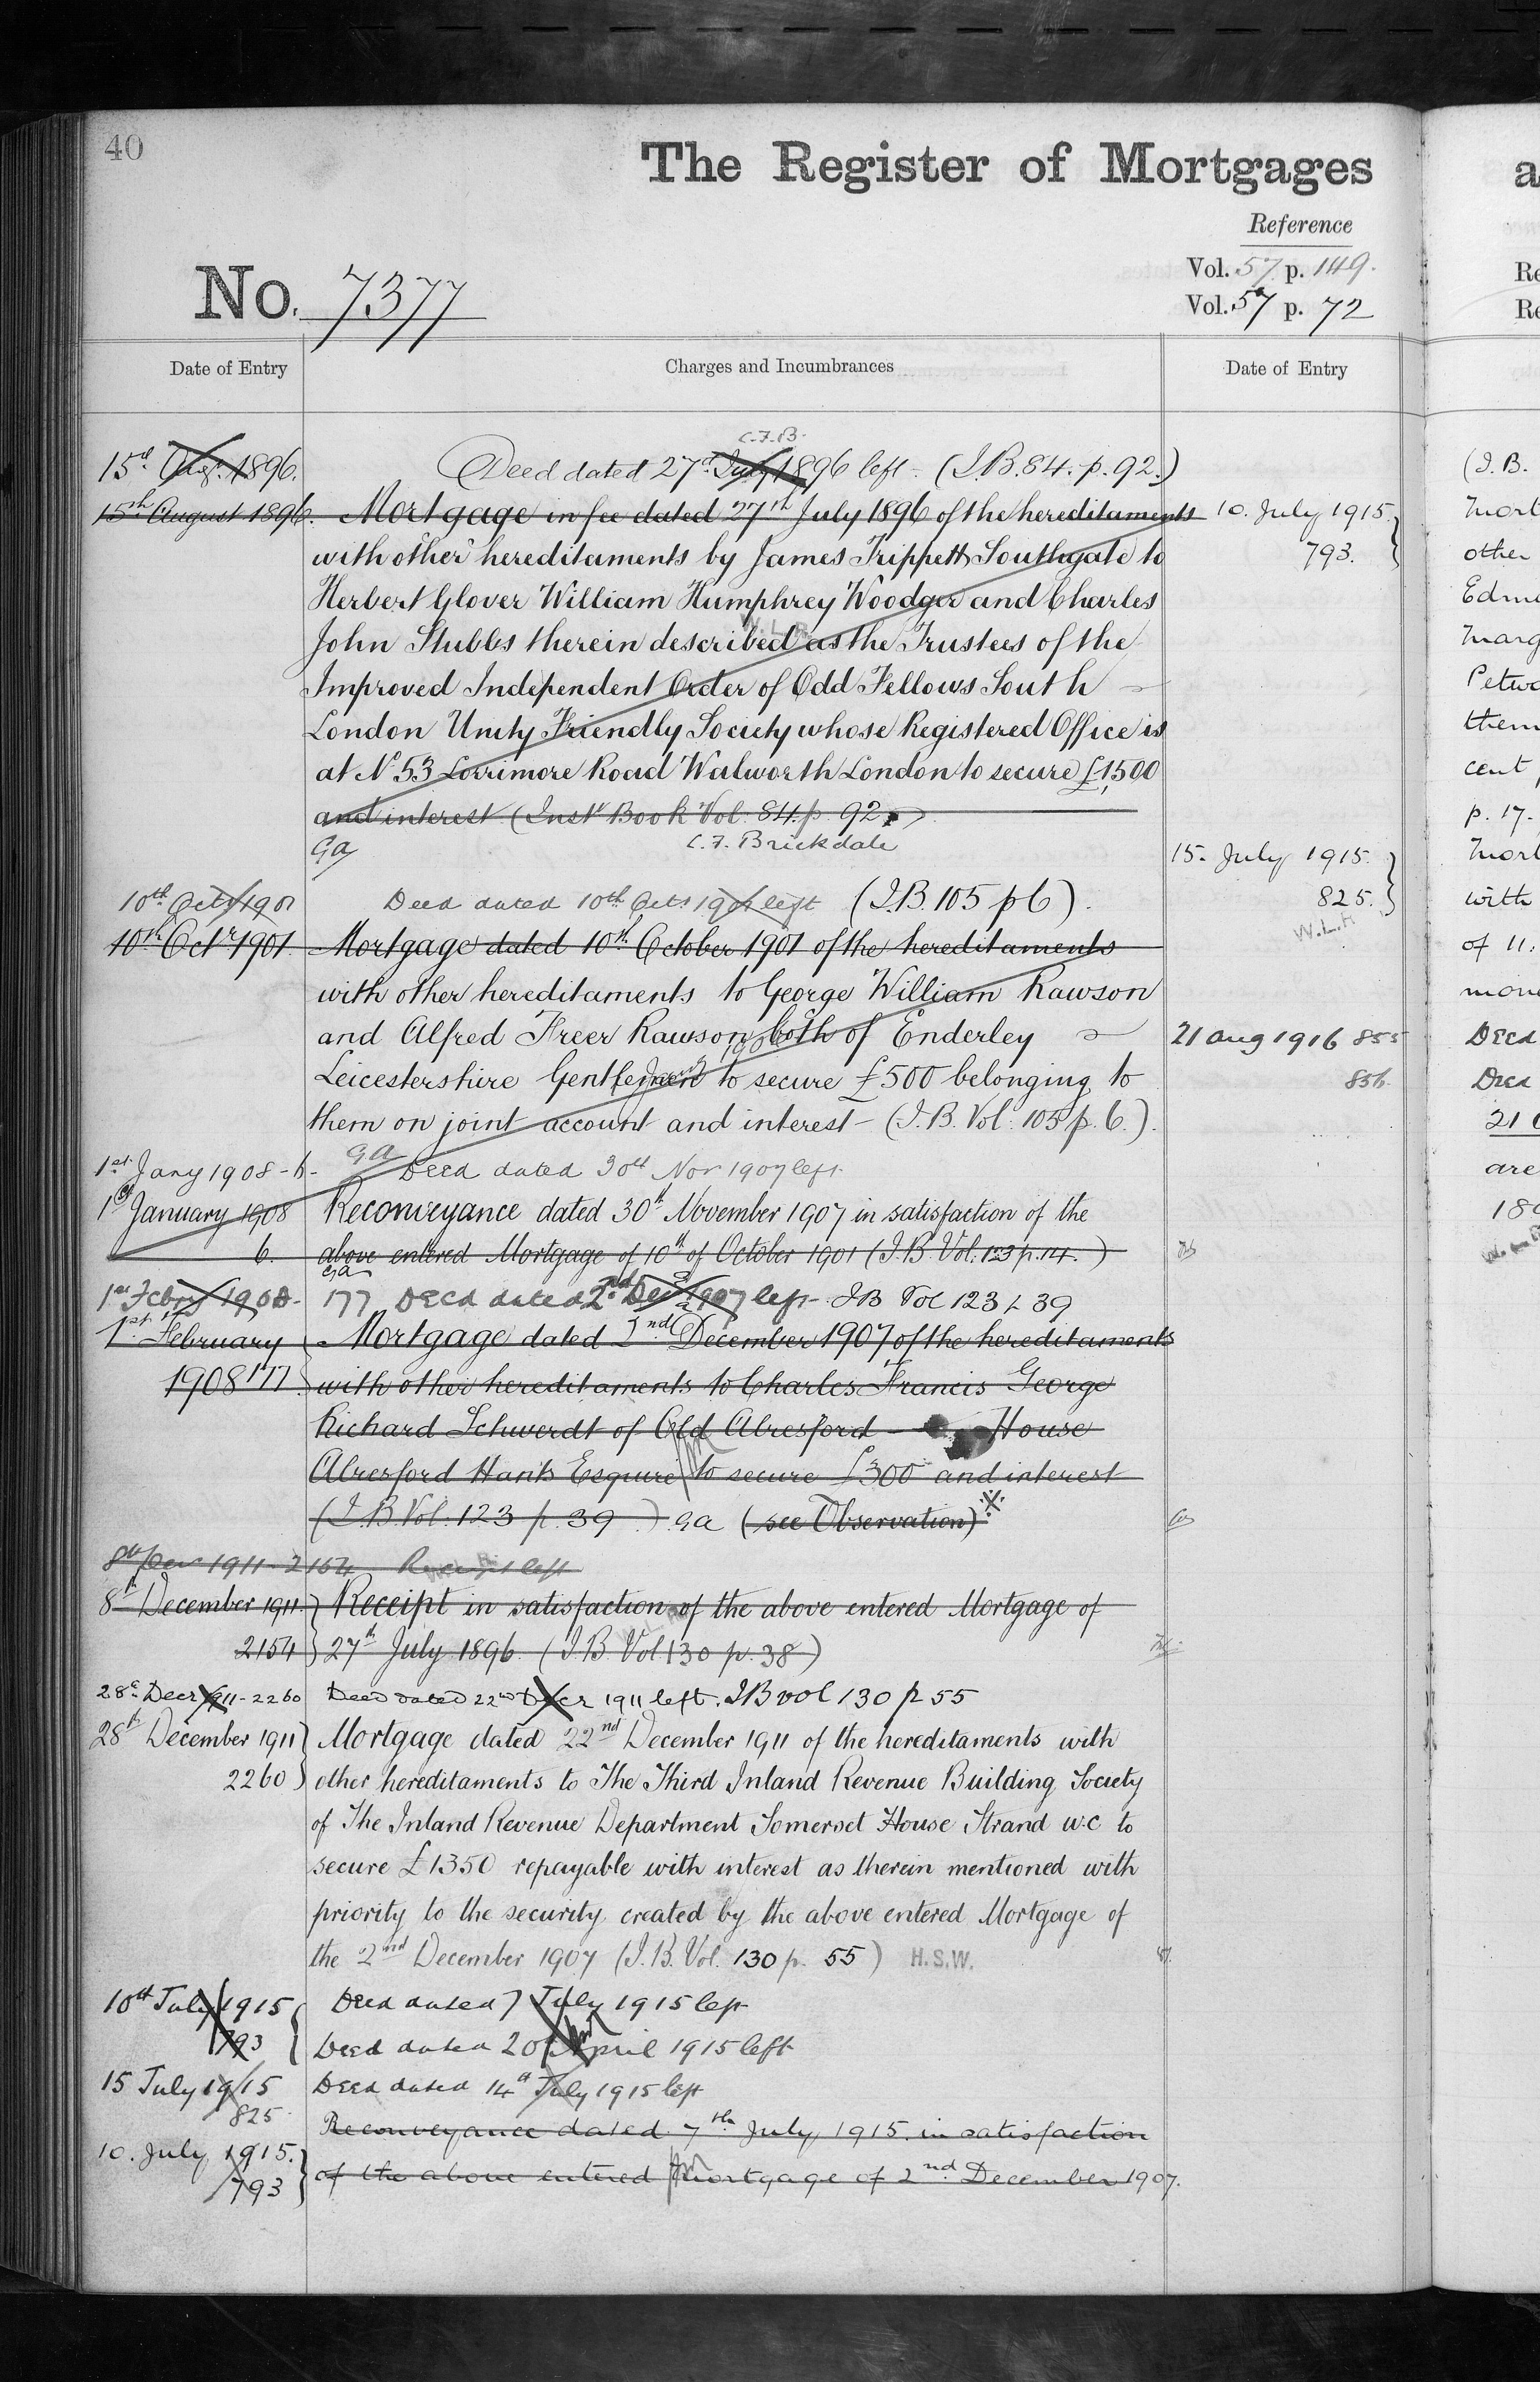 40
The Register of Mortgages
Reference
Vol. 57 p. 149.
No. 7377
Vol. 57a p. 72
Date of Entry
Charges and Incumbrances
Date of Entry
C.F.B.
15th Augt. 1896. Deed dated 27th July 1896 left - (I.B. 84. p. 92.)
15th August 1896. Mortgage in fee dated 27th July 1896 of the hereditaments
with other hereditaments by James Trippett Southgate to
Herbert Glover William Humphrey Woodger and Charles
John Stubbs therein described as the Trustees of the
Improved Independent Order of Odd Fellows South
London Unity Friendly Society whose Registered Office is
at No 53 Lorrimore Road Walworth London to secure £1,500
and interest (Inst Book Vol. 84. p. 92.)
Ga C.F. Brickdale
10th Octr 1901 Deed dated 10th Octr 1901 left (I.B. 105 p 6).
10th Octr 1901 Mortgage dated 10th October 1901 of the hereditaments
with other hereditaments to George William Rawson
and Alfred Freer Rawson both of Enderley
Leicestershire Gentlemen to secure £500 belonging to
them on joint account and interest - (I.B. Vol: 105 p. 6.).
GA
1st Jany 1908 - 6 - Deed dated 30th Nov 1907 left
1st January 1908 Reconveyance dated 30th November 1907 in satisfaction of the
6. above entered Mortgage of 10th of October 1901 (I.B. Vol. 123 p. 14.)
GA
1st Febry 1908 - 177 Deed dated 2nd Decr 1907 left - IB Vol 123 p 39
1st February Mortgage dated 2nd December 1907 of the hereditaments
1908 177 with other hereditaments to Charles Francis George
Richard Schwerdt of Old Alresford - House
Alresford Hants Esquire to secure £300 and interest
(I.B Vol. 123 p. 39) GA (see Observation)
8th Decr 1911 - 2154 Receipt left
8th December 1911. Receipt in satisfaction of the above entered Mortgage of
2154 27th July 1896. (I.B Vol 130 p. 38)
28th Decr 1911 - 2260 Deed dated 22nd Decr 1911 left. IB vol 130 p 55
28th December 1911 Mortgage dated 22nd December 1911 of the hereditaments with
2260 other hereditaments to The Third Inland Revenue Building Society
of The Inland Revenue Department Somerset House Strand W.C to
secure £1350 repayable with interest as therein mentioned with
priority to the security created by the above entered Mortgage of
the 2nd December 1907 (I.B. Vol. 130 p. 55) H.S.W.
10th July 1915 Deed dated 7 July 1915 left
793 Deed dated 20th April 1915 left
15 July 1915 Deed dated 14th July 1915 left
825
Reconveyance dated 7th July, 1915, in satisfaction
10. July, 1915. of the above entered Mortgage of 2nd December 1907.
793
10. July 1915.
793.
15. July 1915.
825.
W.L.F.
21 Aug 1916 855
856
a
Re
Re
(I.B.
Mort
other
Edm
Marg
Petwo
them
cent
p. 17.
Mort
with
of 11.
mone
Deed
Deed
21
are